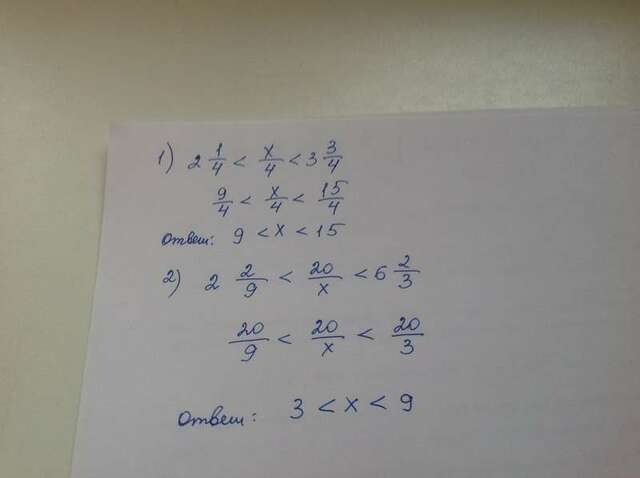 1) 2 1/4 < x/4 < 3 3/4
9/4 < x/4 < 15/4
Ответ: 9 < x < 15
2) 2 2/9 < 20/x < 6 2/3
20/9 < 20/x < 20/3
Ответ: 3 < x < 9